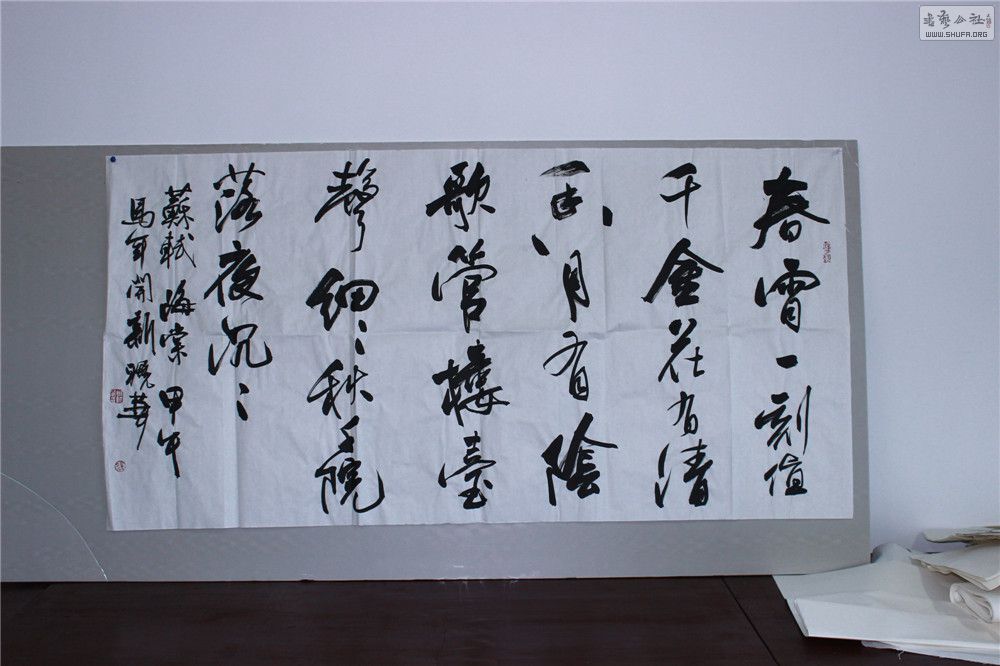 春宵一刻值
千金花有清
香月有陰
歌管樓臺
聲細〻秋千院
落夜沉〻
蘇軾 海棠 甲午
馬年開新
書藝公社
WWW.SHUFA.ORG